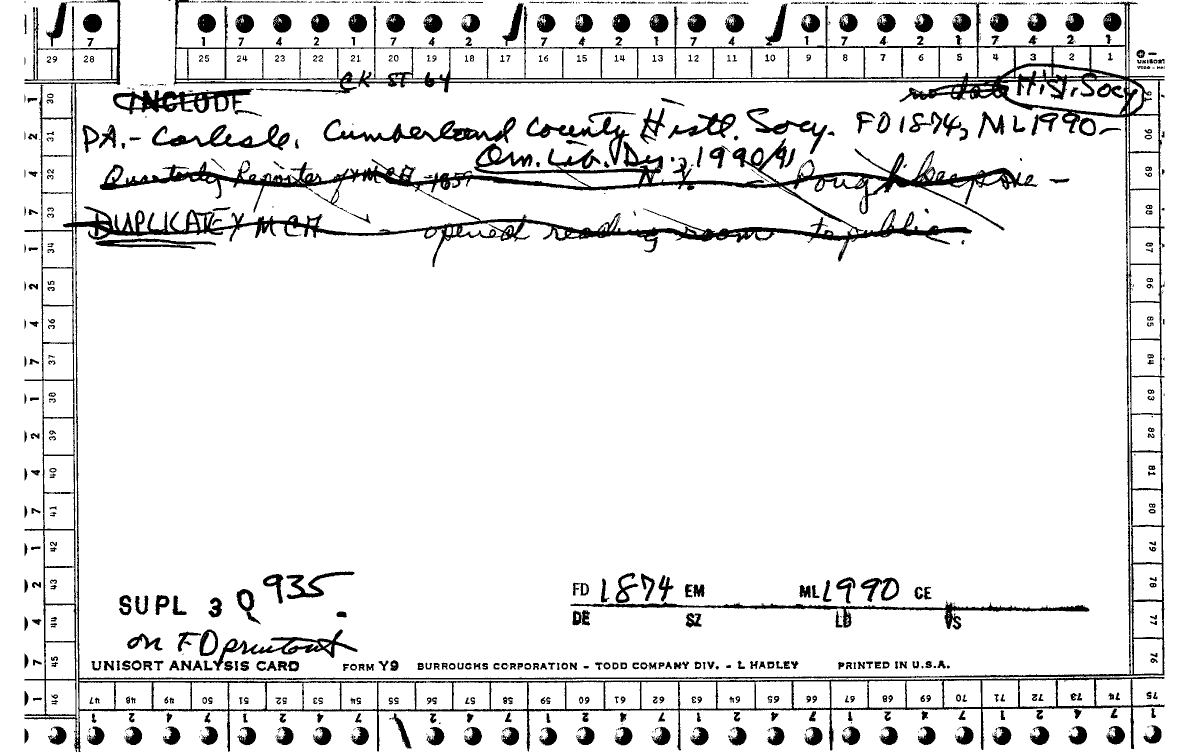 1 7 1 7 4 2 1 7 4 2 1 7 4 2 1 7 4 2 1 7 4 2 1 7 4 2 1
29 28 25 24 23 22 21 20 19 18 17 16 15 14 13 12 11 10 9 8 7 6 5 4 3 2 1
UNISORT
CK ST 64
INCLUDE no date Hist. Socy
PA.- Carlisle. Cumberland County Histl. Socy. FD 1874, ML 1990-
Am. Lib. Dir., 1990/91
Quarterly Reporter of YMCA, -1859 N.Y. - Poughkeepsie -
DUPLICATE YMCA - opened reading room to public.
1 30
2 31
4 32
7 33
1 34
2 35
4 36
7 37
1 38
2 39
4 40
7 41
1 42
2 43
4 44
7 45
1 46
91
90
89
88
87
86
85
84
83
82
81
80
79
78
77
76
SUPL 3 Q 935
on FD printout
FD 1874 EM ML 1990 CE
DE SZ LD VS
UNISORT ANALYSIS CARD FORM Y9 BURROUGHS CORPORATION – TODD COMPANY DIV. – L HADLEY PRINTED IN U.S.A.
47 48 49 50 51 52 53 54 55 56 57 58 59 60 61 62 63 64 65 66 67 68 69 70 71 72 73 74 75
1 2 4 7 1 2 4 7 2 4 7 1 2 4 7 1 2 4 7 1 2 4 7 1 2 4 7 1